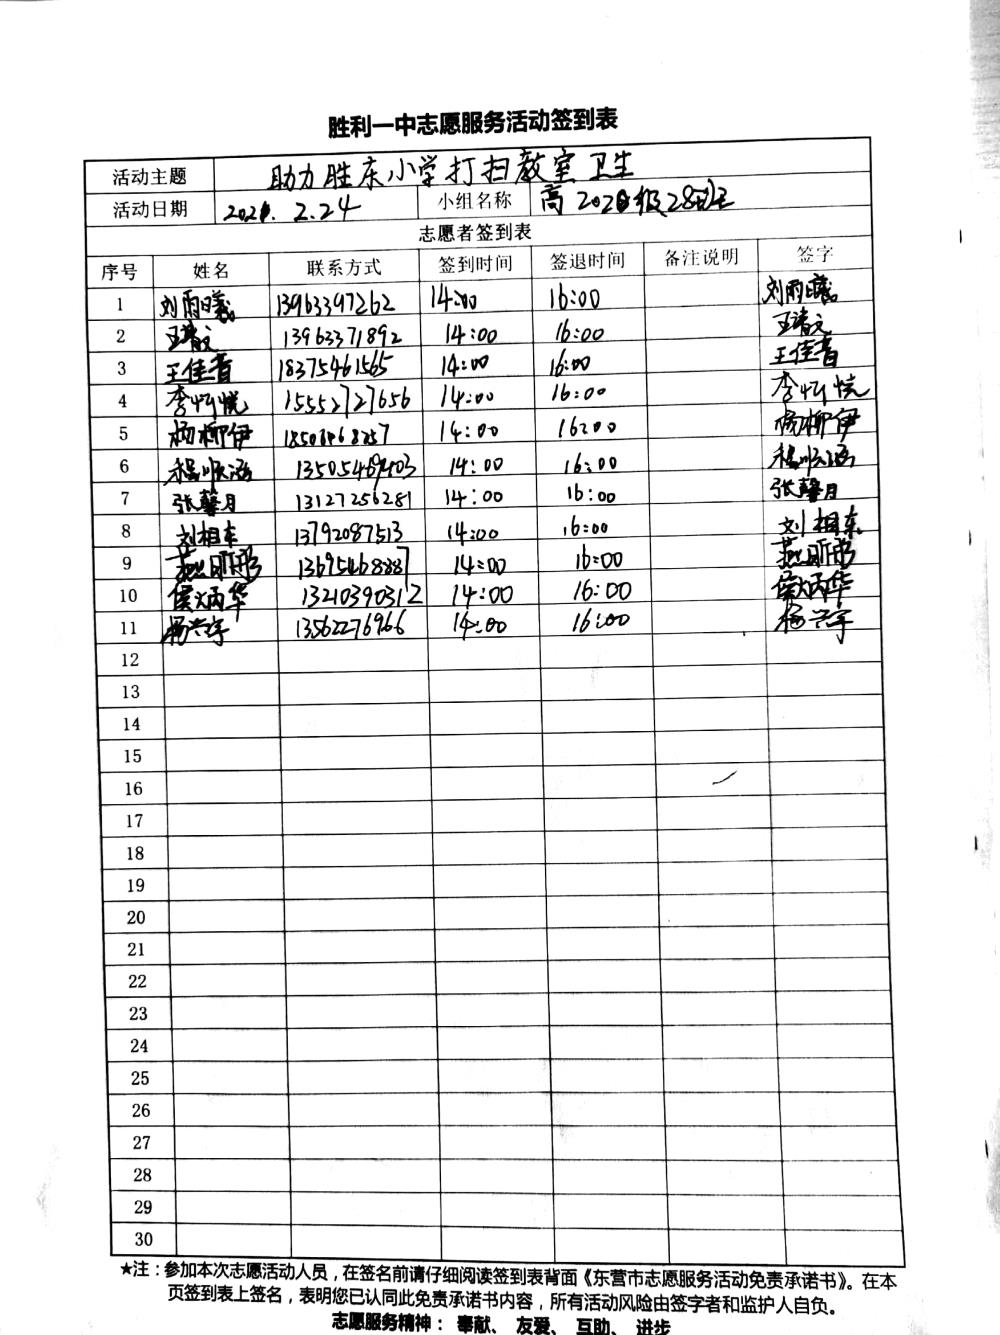 胜利一中志愿服务活动签到表
活动主题 助力胜东小学打扫教室卫生
活动日期 2021.2.24 小组名称 高2020级28班
志愿者签到表
序号 姓名 联系方式 签到时间 签退时间 备注说明 签字
1 刘雨曦 13963397262 14:00 16:00 刘雨曦
2 王靖文 13963371892 14:00 16:00 王靖文
3 王佳音 18375461565 14:00 16:00 王佳音
4 李忻悦 15552727656 14:00 16:00 李忻悦
5 杨柳伊 14:00 16:00 杨柳伊
6 程顺涵 13505469403 14:00 16:00 程顺涵
7 张馨月 13127256281 14:00 16:00 张馨月
8 刘相东 13792087513 14:00 16:00 刘相东
9 燕昕彤 13695468887 14:00 16:00 燕昕彤
10 侯炳华 13210390312 14:00 16:00 侯炳华
11 杨兴宇 13562276966 14:00 16:00 杨兴宇
12
13
14
15
16
17
18
19
20
21
22
23
24
25
26
27
28
29
30
★注：参加本次志愿活动人员，在签名前请仔细阅读签到表背面《东营市志愿服务活动免责承诺书》。在本
页签到表上签名，表明您已认同此免责承诺书内容，所有活动风险由签字者和监护人自负。
志愿服务精神： 奉献、 友爱、 互助、 进步